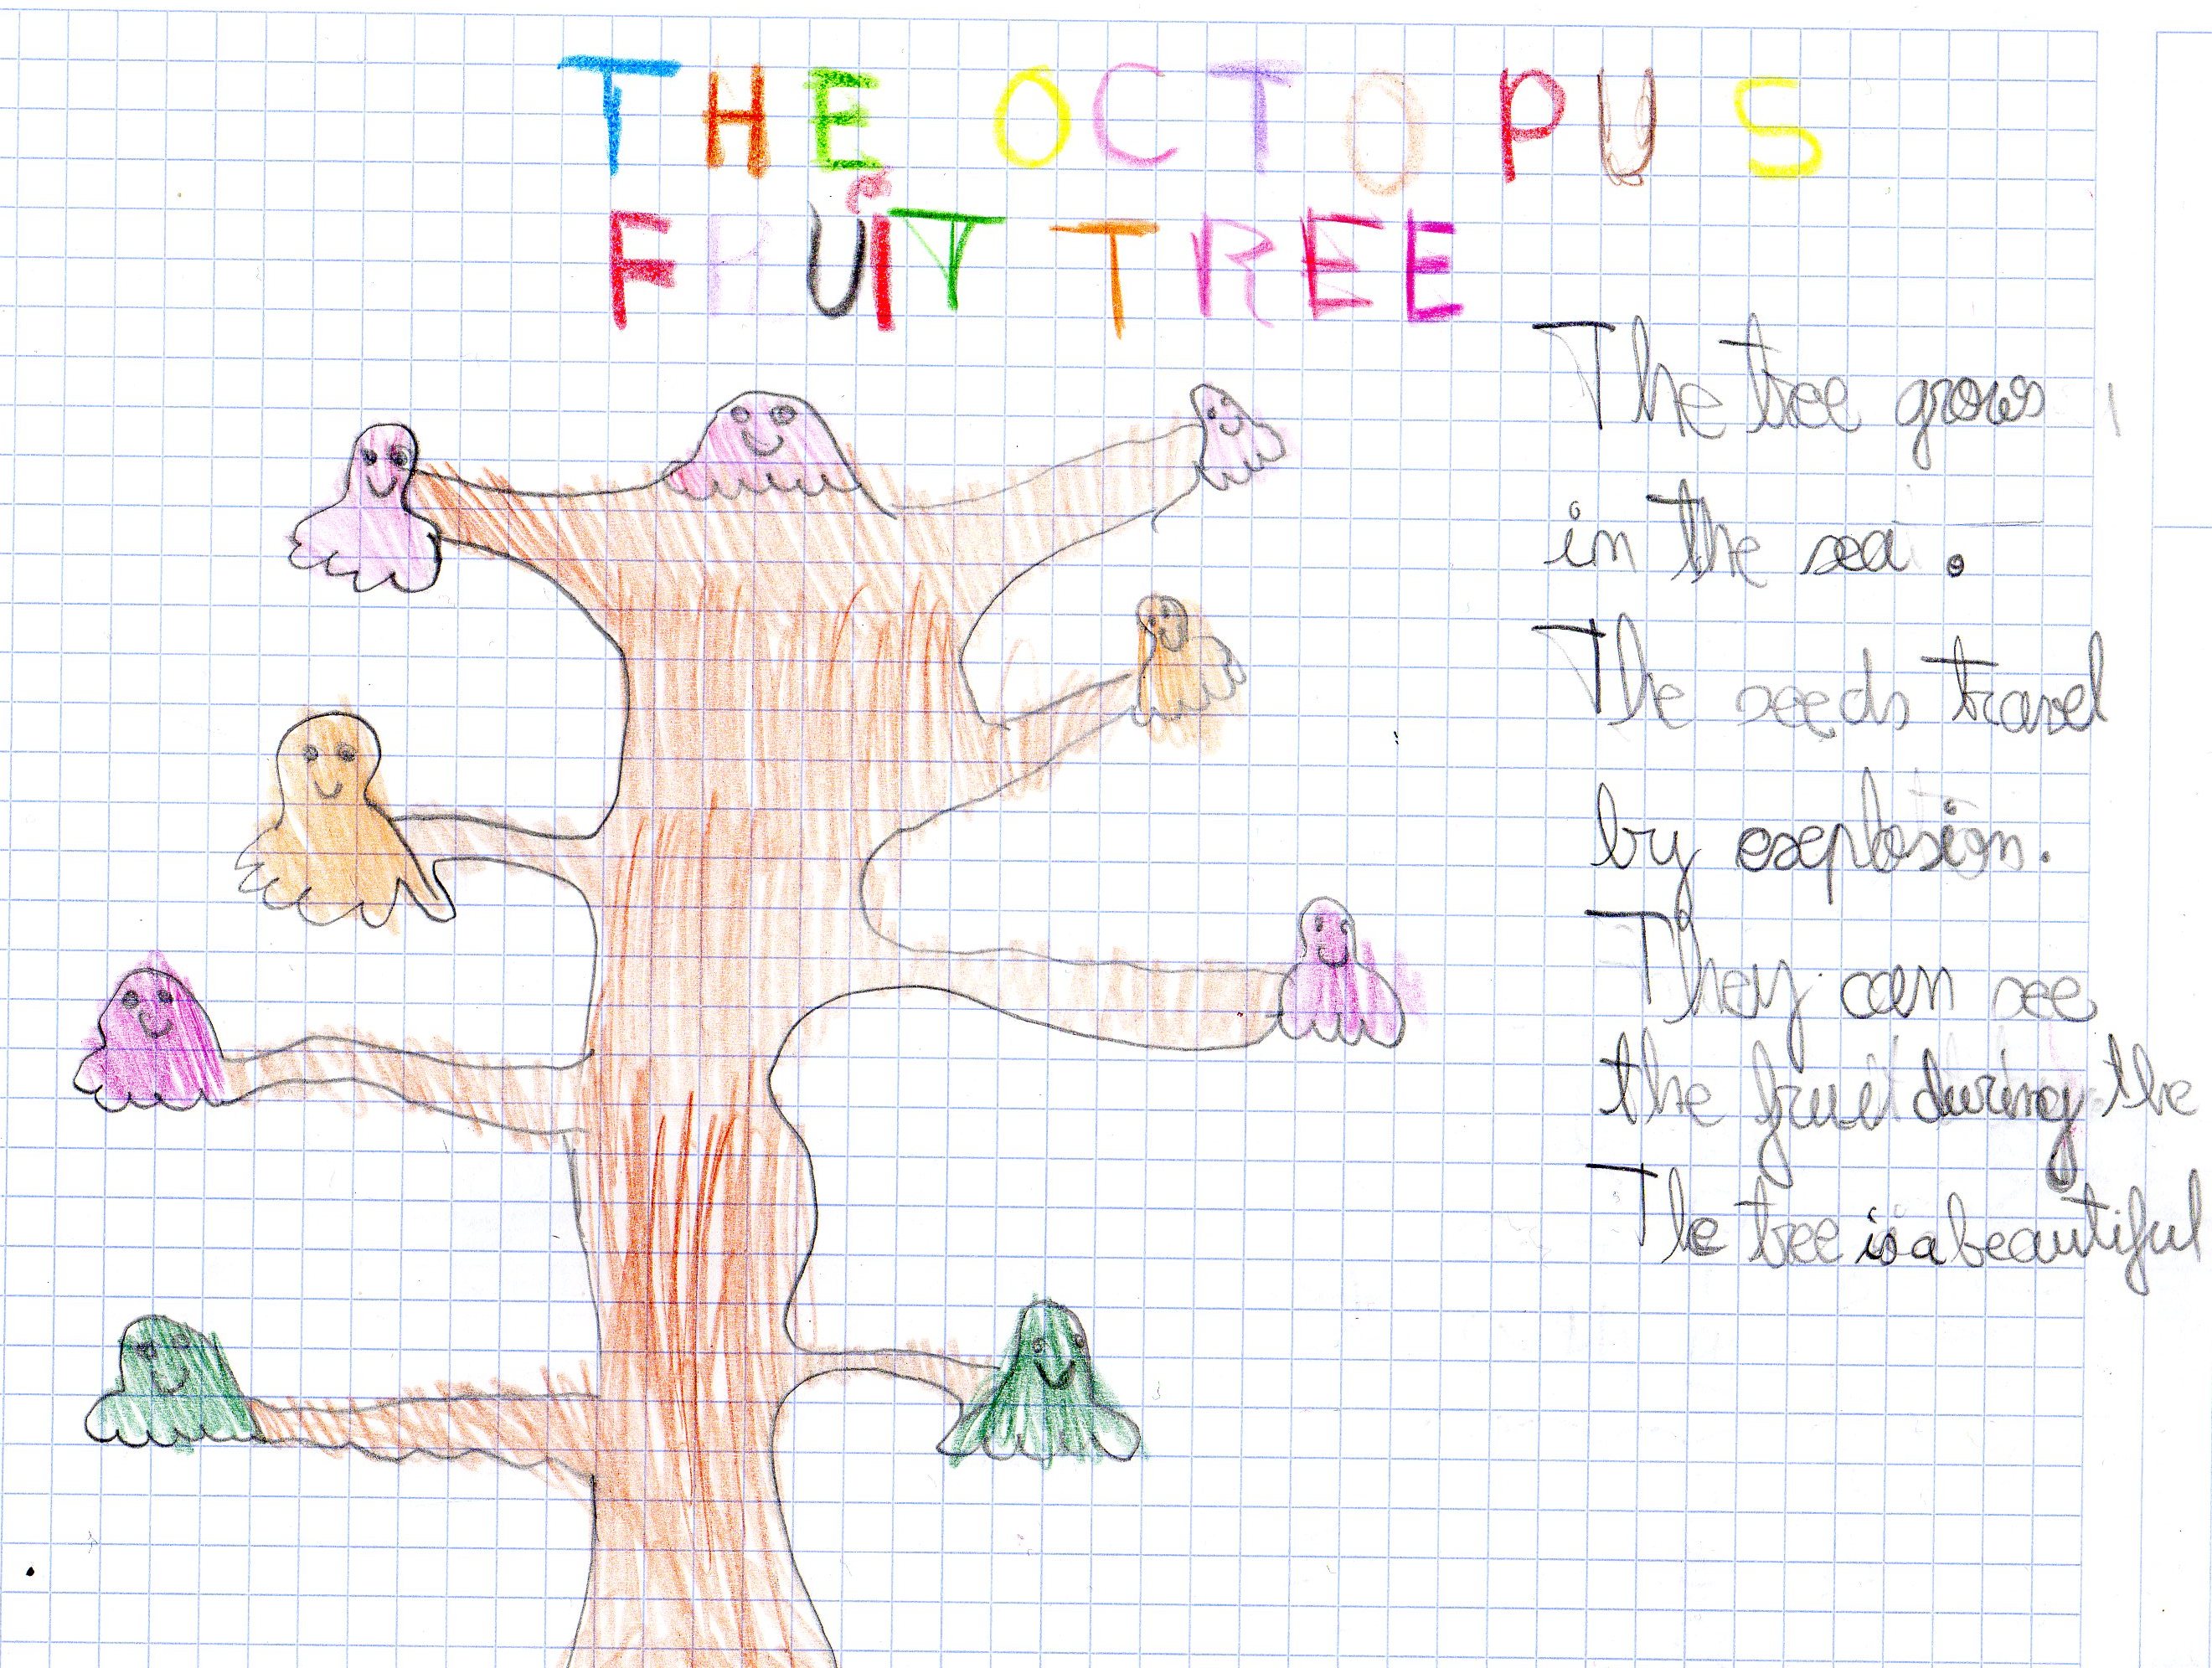 THE OCTOPUS
FRUIT TREE
The tree grows
in the sea.
The seeds travel
by explosion.
They can see
the fruit during the
The tree is a beautiful